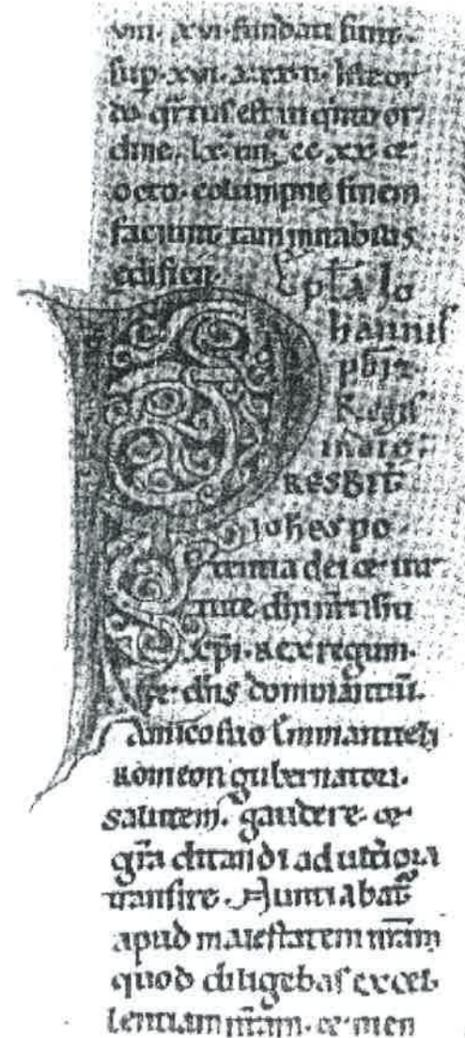 viii. xvi. fundati sunt.
sup. xvi. x. xxx. ii. &
est in or
dine. lx. iiij. cc. xx. &
octo. columpnę finem
faciunt tam mirabilis
edificii.
Ep̄la Jo
hannis
p̄b̄ri
Regis
RESBIT̄
iohēs po
tentia dei & uir
tute dn̄i nr̄i ih̄u
xp̄i. rex regum.
& dn̄s dominantiū.
Amico suo Emmanueli
Romeon gubernatori.
salutem. gaudere. &
gr̄a ditandi ad ulteriora
transire. Nuntiabat̄
apud maiestatem nr̄am
quod diligebas excel
lentiam nr̄am. & men